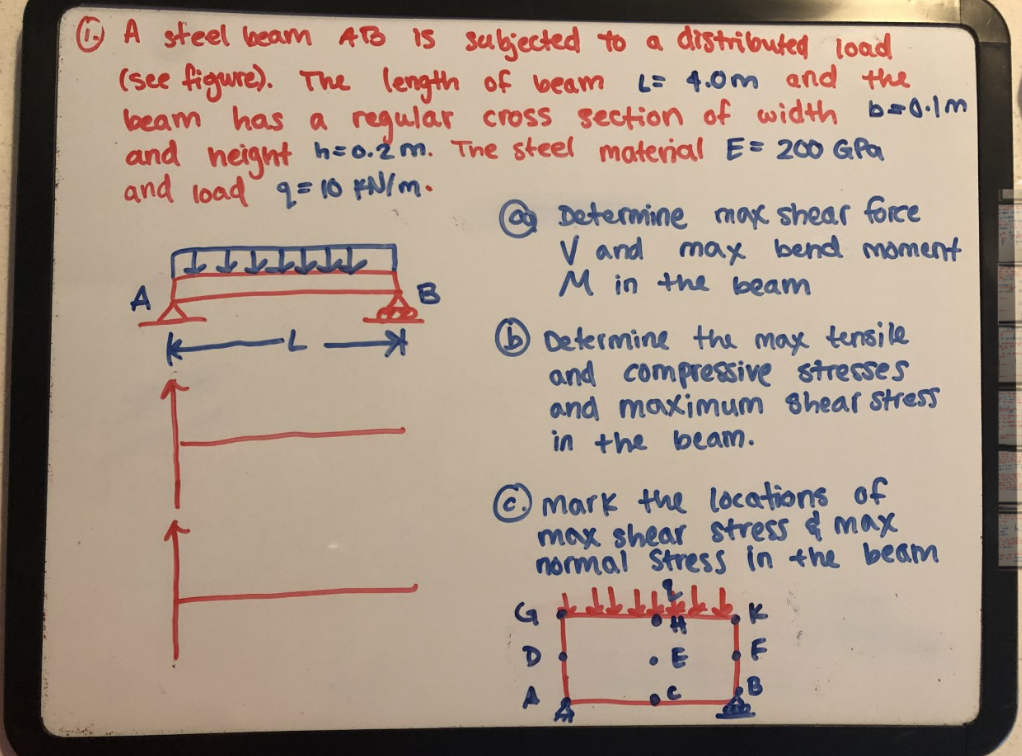 1. A steel beam AB is subjected to a distributed load
(see figure). The length of beam L= 4.0m and the
beam has a regular cross section of width b=0.1m
and height h=0.2m. The steel material E= 200 GPa
and load q=10 KN/m.
a Determine max shear force
V and max bend moment
M in the beam
b Determine the max tensile
and compressive stresses
and maximum shear stress
in the beam.
c. mark the locations of
max shear stress & max
normal stress in the beam
A B
L
q
G H K
D E F
A C B